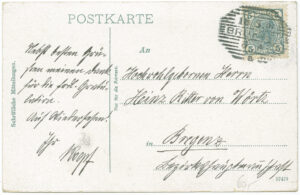 POSTKARTE
Schriftliche Mitteilungen.
Nebst besten Grüs-
sen meinen Dank
für die frdl. Gratu-
lation.
Auf Wiedersehen!
Ihr
Nur für die Adresse.
An
Hochwohlgeboren Herrn
Heinz Ritter von Wörtz
in Bregenz
Bezirkshauptmannschaft